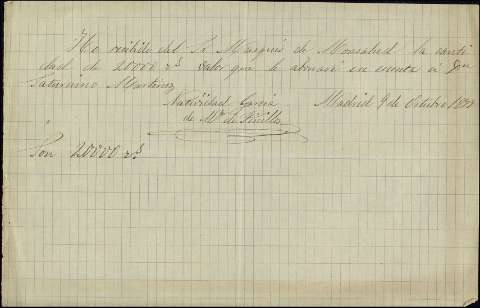 He recibido del Sr Marqués de Monsalud la canti
dad de 20000 rs valor que le abonaré en cuenta á Don
Saturnino Martinez
Madrid 9 de Octubre
Natividad Garcia
de Mn de Pinillos
Son 20000 rs